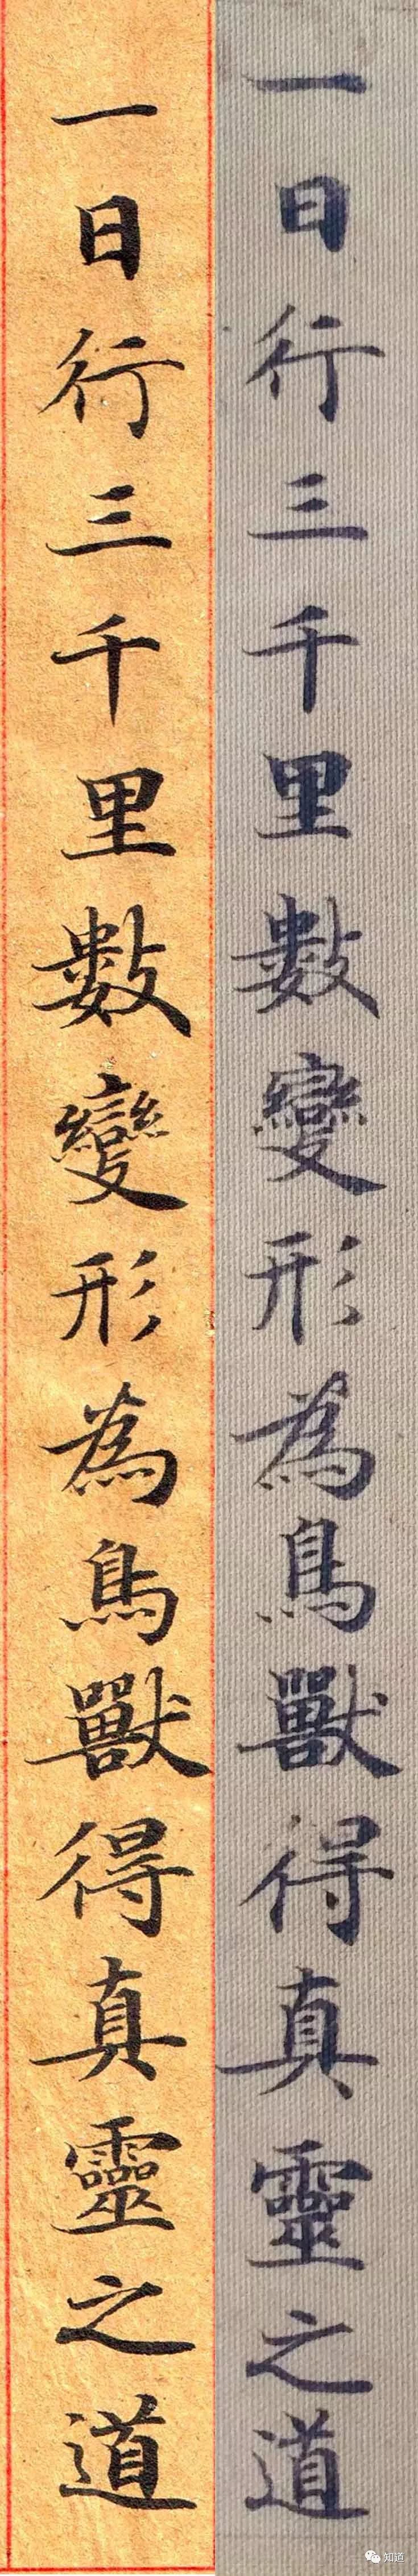 一日行三千里數變形為鳥獸得真靈之道
一日行三千里數變形為鳥獸得真靈之道
知道